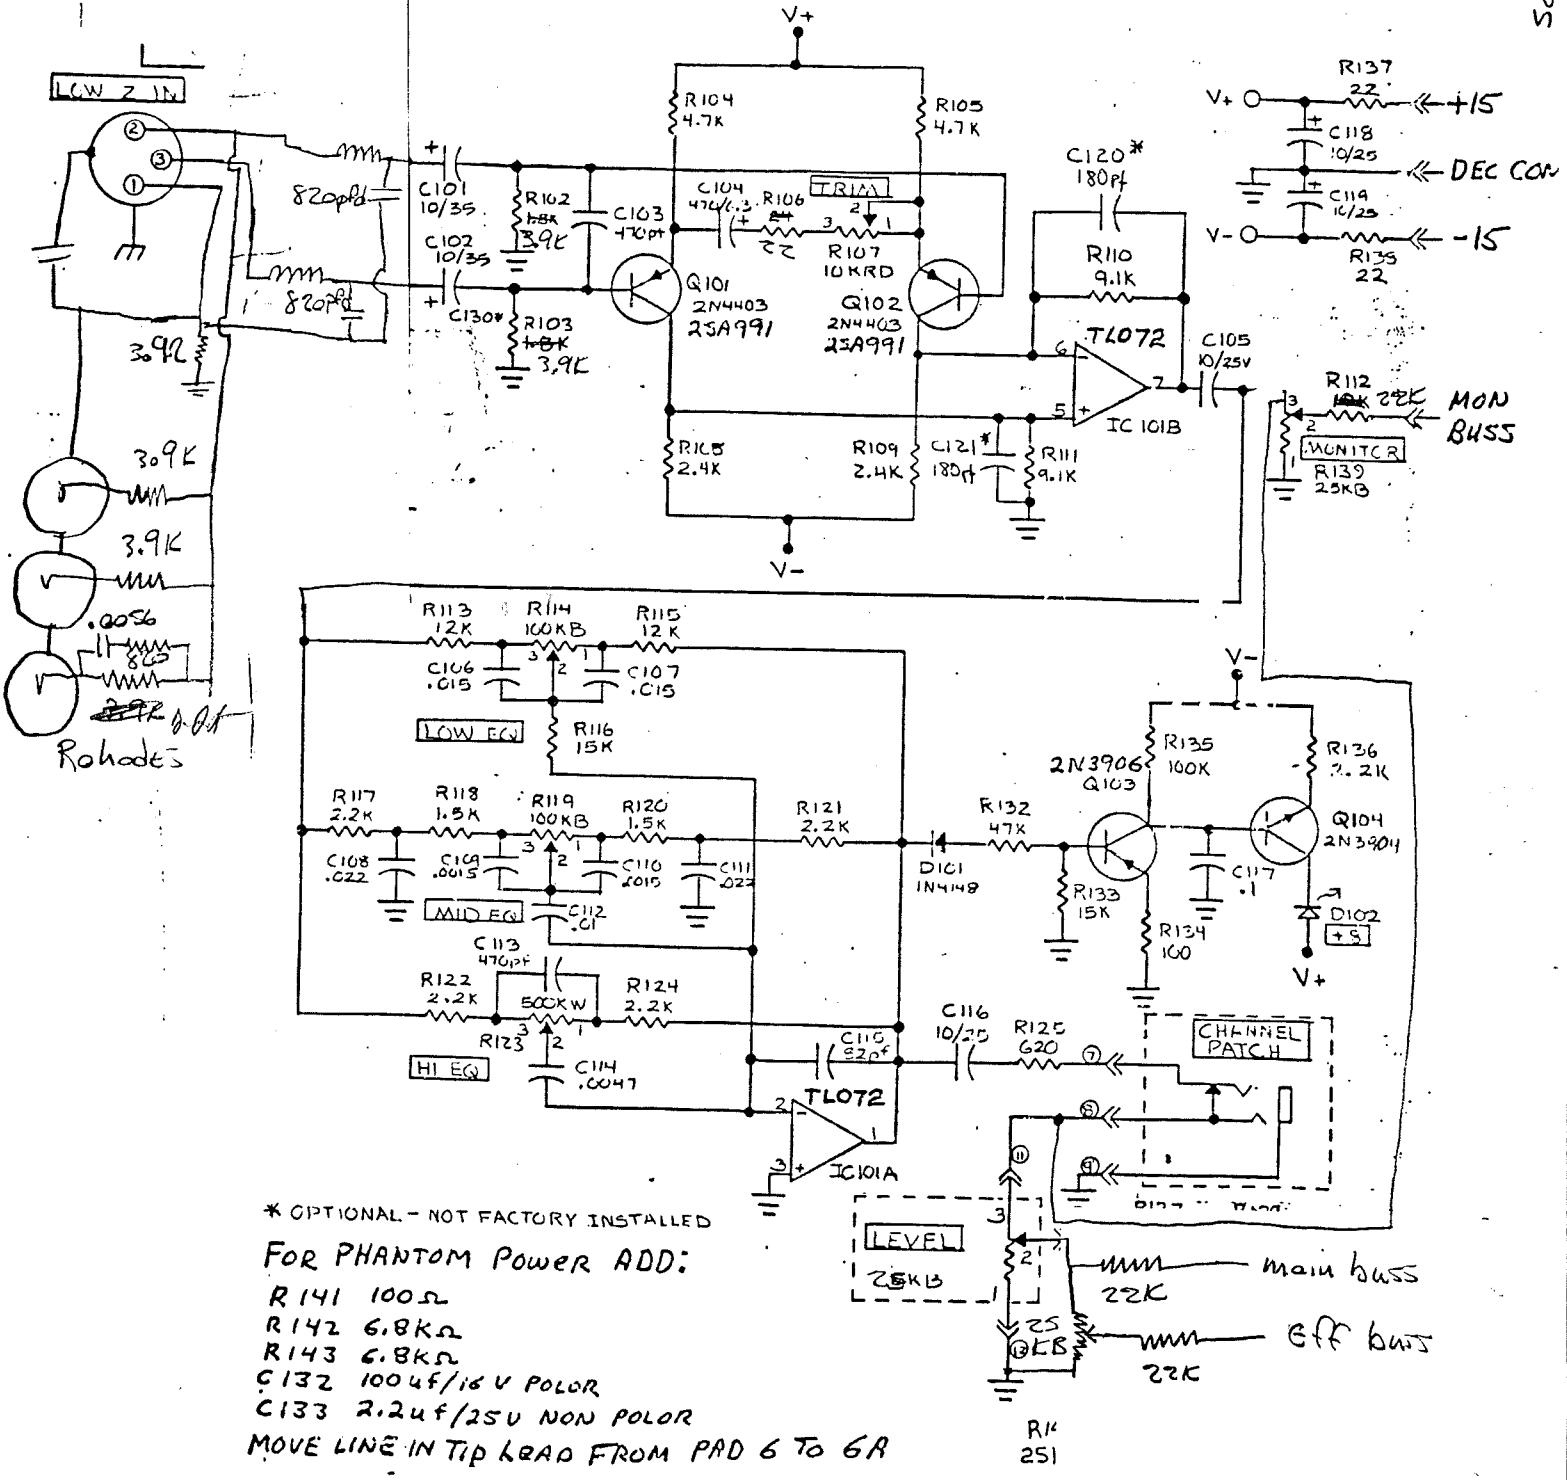 V+
LOW Z IN
2
3
1
820pfd
820pfd
3.9K
3.9K
.0056
Rohodes
C101
10/35
C102
10/35
C130*
R102
1.8K
3.9K
R103
1.8K
3.9K
C103
470pf
R104
4.7K
C104
R106
22
TRIM
3
2
1
R107
10KRD
R105
4.7K
Q101
2N4403
2SA991
Q102
2N4403
2SA991
C120*
180pf
R110
9.1K
6
5
7
TL072
IC101B
C105
10/25V
2.4K
R109
2.4K
C121*
180pf
R111
9.1K
V-
R137
22
V+
+15
C118
10/25
DEC COM
C119
10/25
V-
-15
22
R112
22K
MON
BUSS
3
2
1
MONITOR
R139
25KB
R113
12K
R114
100KB
R115
12K
3
2
1
C106
.015
C107
.015
LOW EQ
R116
15K
R117
2.2K
R118
1.5K
R119
100KB
R120
1.5K
R121
2.2K
3
2
1
C108
.022
C109
.0015
C110
.0015
C111
.022
MID EQ
C112
.01
C113
470pf
R122
2.2K
500KW
R124
2.2K
R123
3
2
1
HI EQ
C114
.0047
C115
82pf
TL072
2
3
1
IC101A
D101
1N4148
R132
47K
R133
15K
2N3906
Q103
R134
100
V-
R135
100K
R136
2.2K
C117
.1
Q104
2N3904
D102
+8
V+
C116
10/25
R125
620
7
8
9
CHANNEL
PATCH
11
3
LEVEL
25KB
2
1
12
25
KB
22K
main buss
22K
Eff buss
* OPTIONAL - NOT FACTORY INSTALLED
FOR PHANTOM POWER ADD:
R141 100Ω
R142 6.8KΩ
R143 6.8KΩ
C132 100uf/16V POLOR
C133 2.2uf/25V NON POLOR
MOVE LINE IN TIP LEAD FROM PAD 6 TO 6A
251